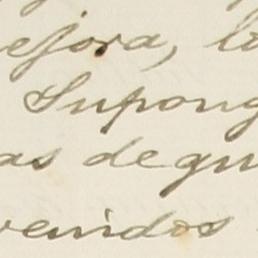 ejora, lo
Supong
as de gu
venidos